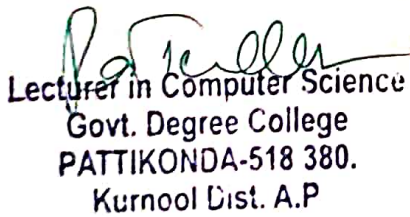 Lecturer in Computer Science
Govt. Degree College
PATTIKONDA-518 380.
Kurnool Dist. A.P